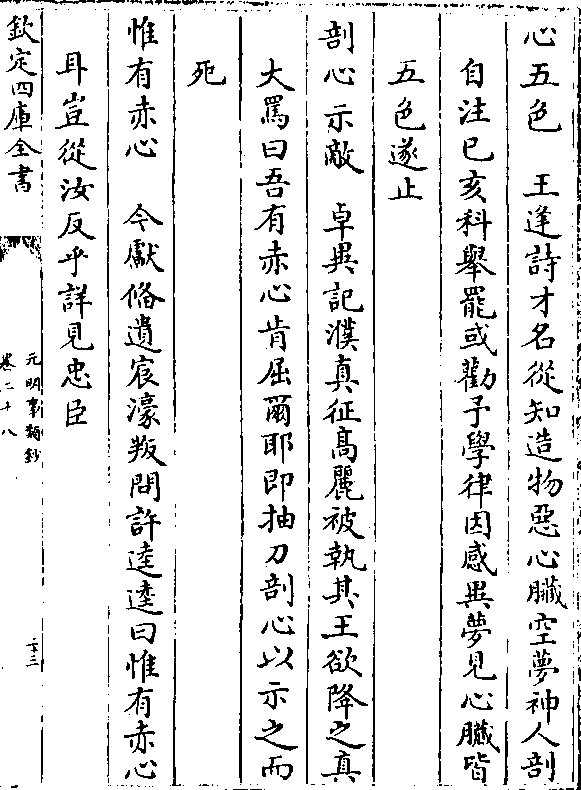 心五色　王逢詩才名從知造物惡心臟空夢神人剖
自注己亥科舉罷或勸予學律因感異夢見心臟皆
五色遂止
剖心示敵　卓異記濮真征高麗被執其王欲降之真
大罵曰吾有赤心肯屈爾耶即抽刀剖心以示之而
死
惟有赤心　今獻備遺宸濠叛問許逵逵曰惟有赤心
耳豈從汝反乎詳見忠臣
欽定四庫全書
元明事類鈔
卷二十八
二十三